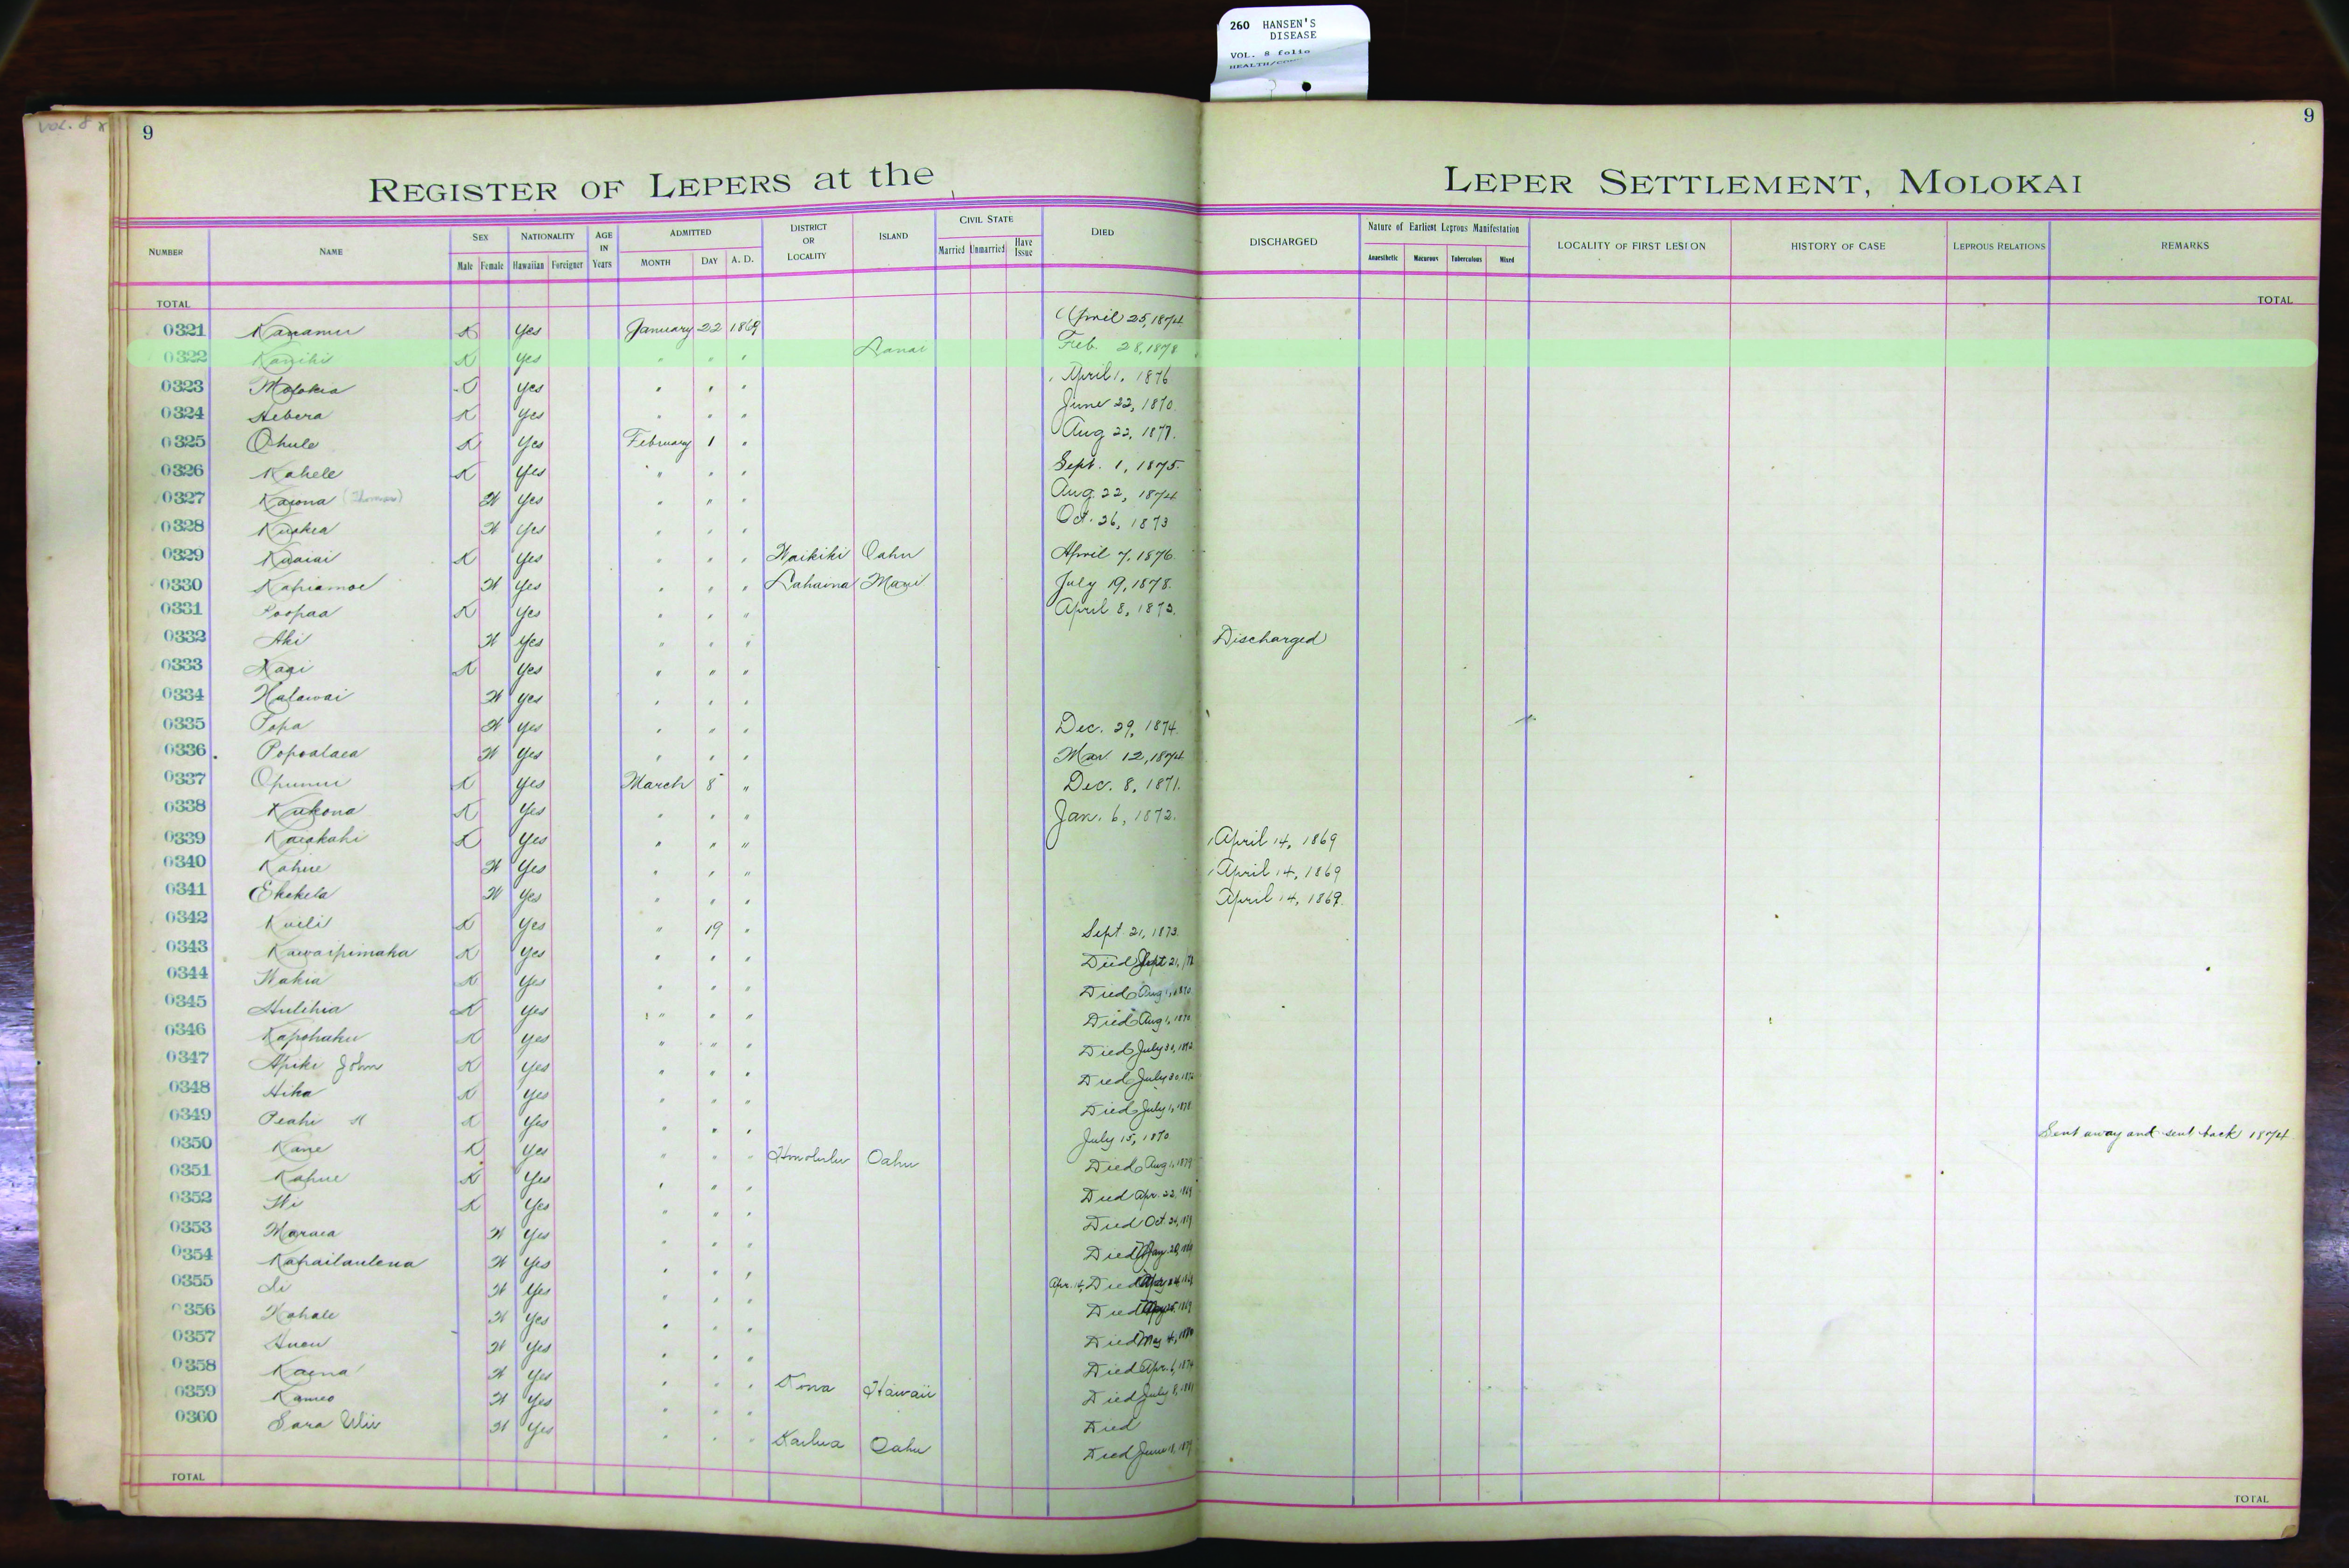 260 HANSEN'S
DISEASE
VOL. 8 folio
VOL. 8
9
9
REGISTER OF LEPERS at the LEPER SETTLEMENT, MOLOKAI
NUMBER NAME SEX Male Female NATIONALITY Hawaiian Foreigner AGE IN Years ADMITTED MONTH DAY A. D. DISTRICT OR LOCALITY ISLAND CIVIL STATE Married Unmarried Have Issue DIED DISCHARGED Nature of Earliest Leprous Manifestation Anaesthetic Macurous Tuberculous Mixed LOCALITY OF FIRST LESION HISTORY OF CASE LEPROUS RELATIONS REMARKS
TOTAL TOTAL
0321 Kanamu K Yes January 22 1869 April 25, 1874
0322 Kaniki K Yes " " " Lanai Feb. 28, 1878
0323 Molokia K Yes " " " April 1, 1876
0324 Hebera K Yes " " " June 22, 1870
0325 Ohule K Yes February 1 " Aug 22, 1877.
0326 Kahele K Yes " " " Sept. 1, 1875.
0327 Kaiona (Thomas) W Yes " " " Aug. 22, 1874
0328 W Yes " " " Oct. 26, 1873
0329 Kuaiai K Yes " " " Waikiki Oahu April 7, 1876.
0330 Kahiamoe W Yes " " " Lahaina Maui July 19, 1878.
0331 Poopaa K Yes " " " April 8, 1873.
0332 Aki W Yes " " " Discharged
0333 K Yes " " "
0334 Halawai W Yes " " "
0335 Popa W Yes " " " Dec. 29, 1874.
0336 Popoalaea W Yes " " " Mar. 12, 1874
0337 Opunui K Yes March 8 " Dec. 8, 1871.
0338 Kukona K Yes " " " Jan. 6, 1872.
0339 Kaiakahi K Yes " " " April 14, 1869
0340 Kahue W Yes " " " April 14, 1869
0341 Ekekela W Yes " " " April 14, 1869.
0342 Kuili K Yes " 19 " Sept. 21, 1873.
0343 Kawaipimaka K Yes " " " Died Sept 21,
0344 Wakia K Yes " " " Died Aug 1, 1870
0345 Hulihia K Yes " " " Died Aug 1, 1870
0346 Kapohaku K Yes " " " Died July 30,
0347 Apiki John K Yes " " " Died July 30,
0348 Hika K Yes " " " Died July 1, 1878
0349 Peahi K Yes " " " July 15, 1870. Sent away and sent back 1874.
0350 Kane K Yes " " " Honolulu Oahu Died Aug 1, 1879
0351 Kahue K Yes " " " Died Apr. 22, 1869
0352 K Yes " " " Died Oct. 24,
0353 Maraea W Yes " " " Died May 20,
0354 Kahailaulena W Yes " " " Apr. 14, Died
0355 W Yes " " " Died
0356 Kahale W Yes " " " Died May 4,
0357 W Yes " " " Died Apr. 6, 1874
0358 Kaena W Yes " " " Kona Hawaii Died July 8, 1881
0359 Kameo W Yes " " " Died
0360 Sara W Yes " " " Kailua Oahu Died June 18, 1879
TOTAL TOTAL